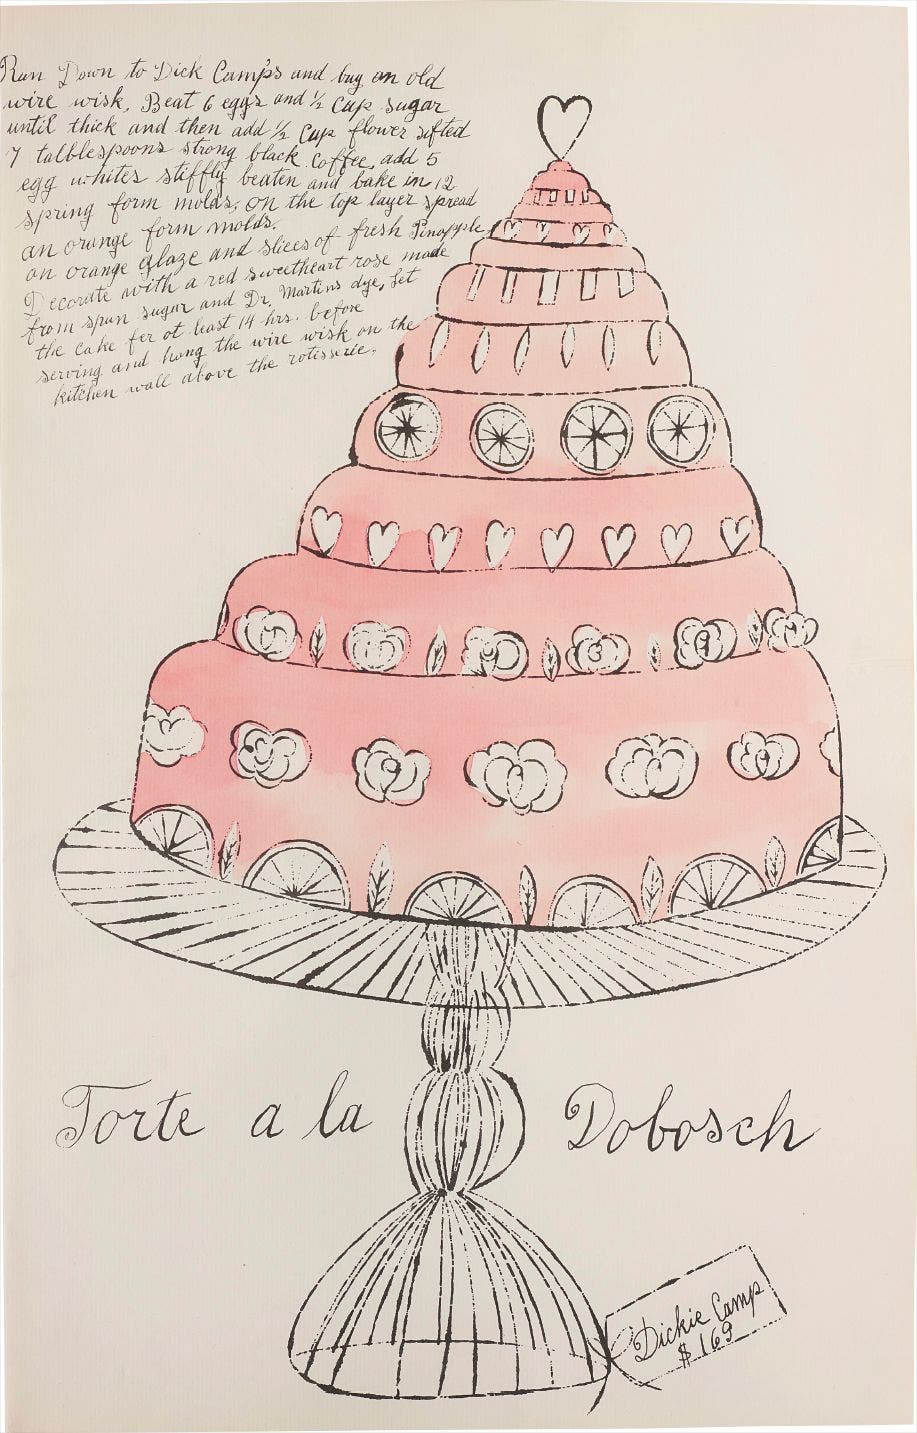 Run Down to Dick Camps and buy an old
wire wisk. Beat 6 eggs and ½ cup sugar
until thick and then add ½ cup flower sifted
7 talblespoons strong black coffee, add 5
egg whites stiffly beaten and bake in 12
spring form molds, on the top layer spread
an orange form molds.
an orange glaze and slices of fresh Pinapple
Decorate with a red sweetheart rose made
from spun sugar and Dr. Martins dye, Let
the cake fer at least 14 hrs. before
serving and hang the wire wisk on the
kitchen wall above the rotisserie.
Torte a la Dobosch
Dickie Camp
$ 169